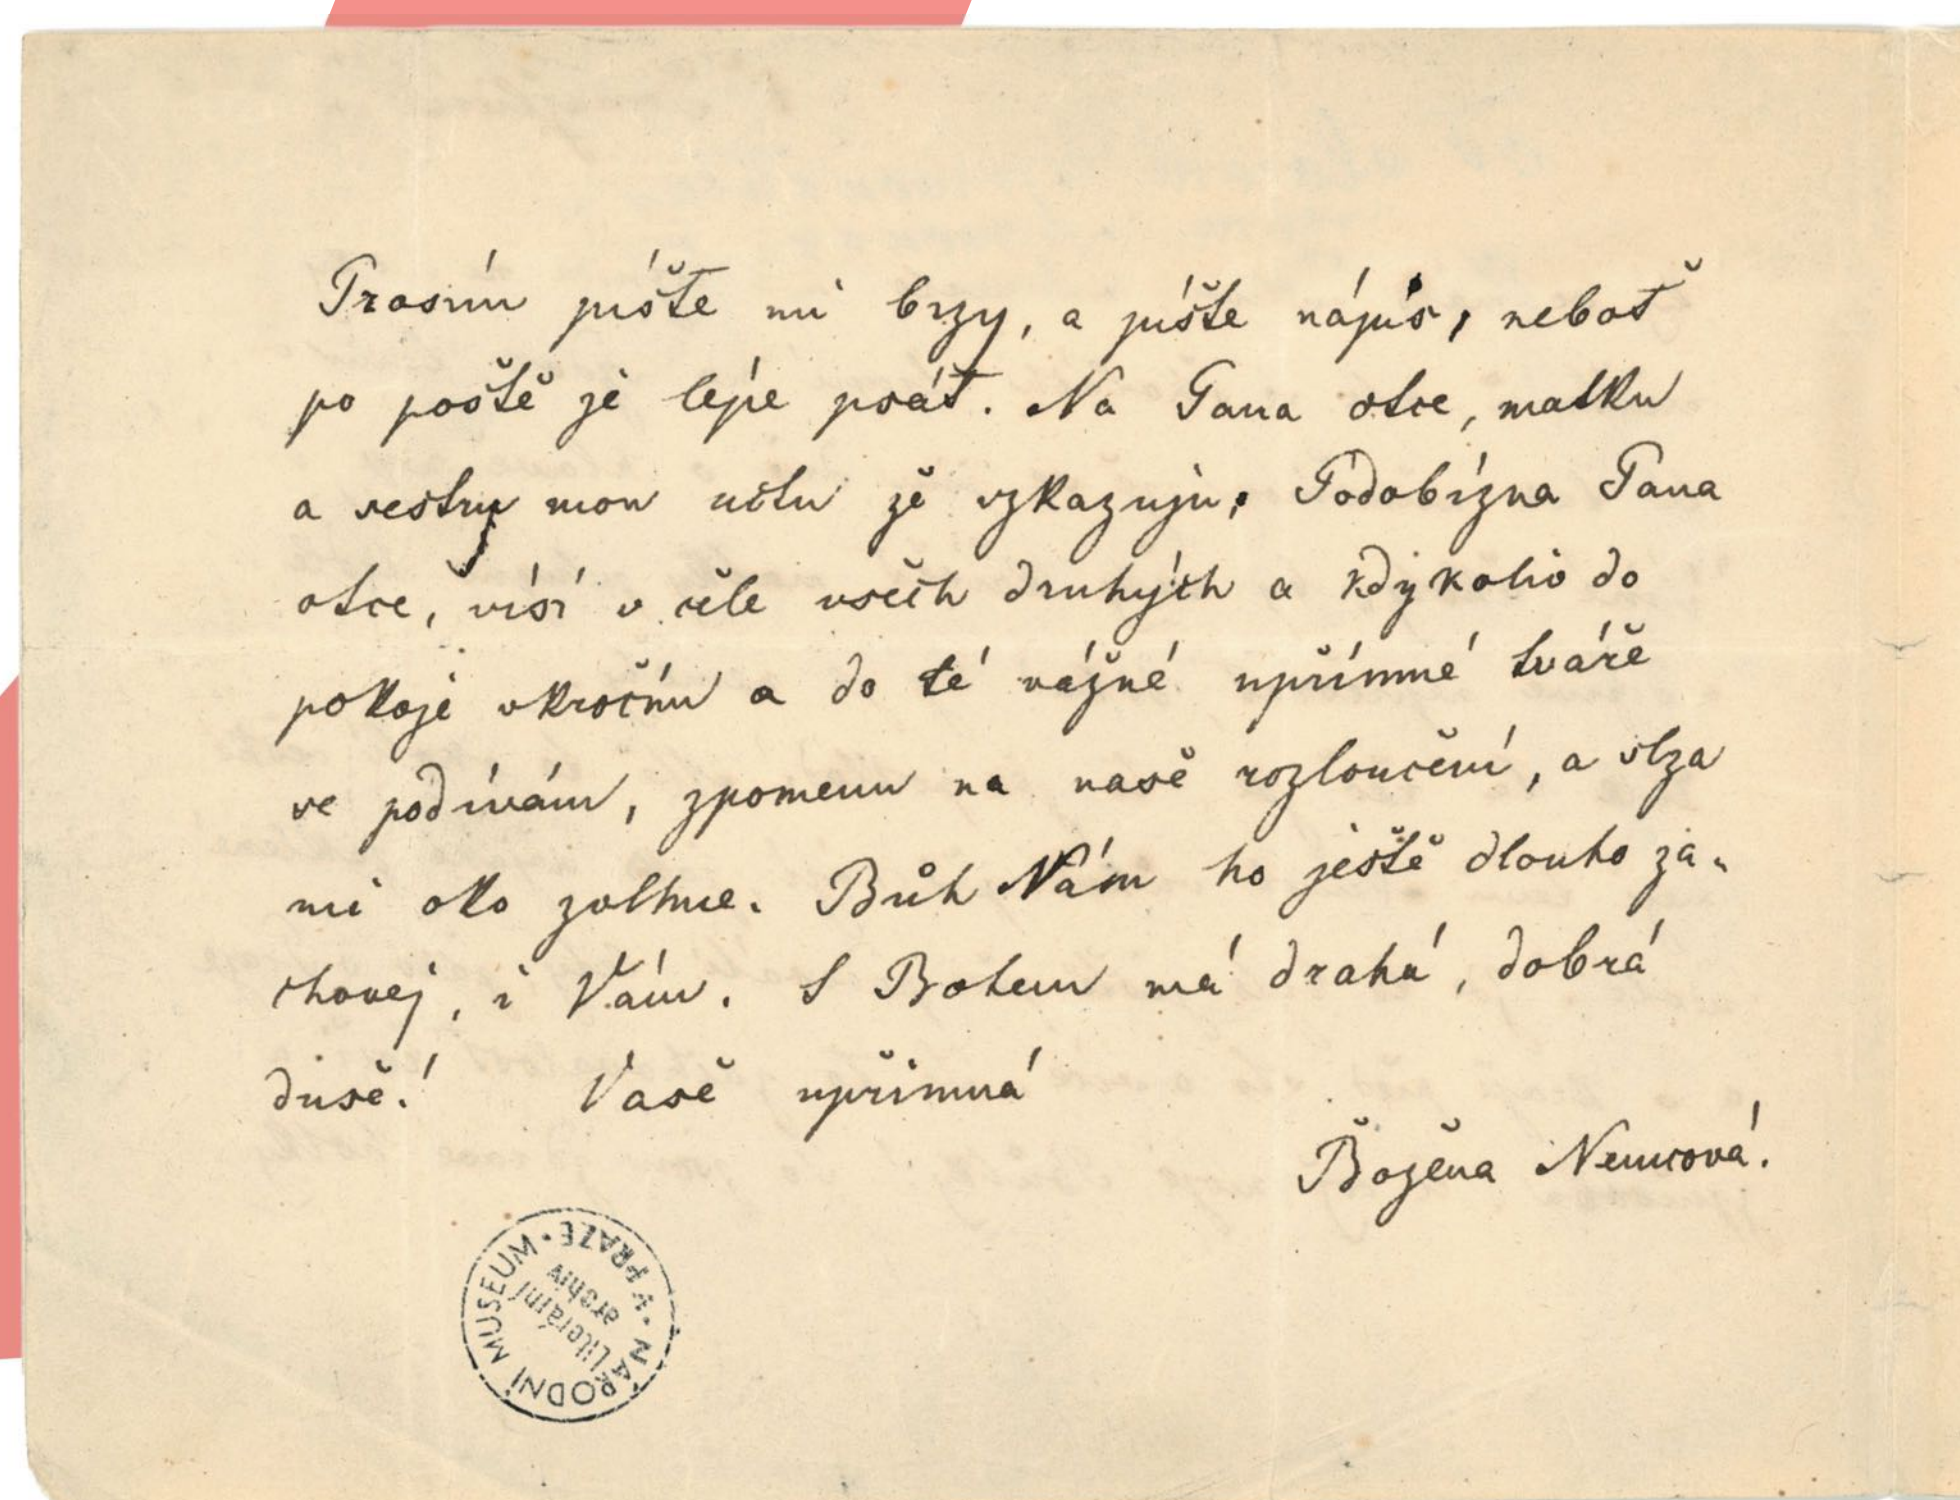 Prosím pište mi brzy, a píšte nápis, neboť
po poště je lépe psáť. Na Pana otce, matku
a sestru mou uctu že vzkazuju. Podobízna Pana
otce, vísí v čele všech druhých a kdykoliv do
pokoje vkročím a do té vážné upřímné tváře
se podívám, zpomenu na našě rozloučení, a slza
mi oko zvlhne. Bůh Nám ho ještě dlouho za-
chovej, i Vám. S Bohem má drahá, dobrá
dušě! Vašě upřimná
Božena Nemcová.
NÁRODNÍ MUSEUM • V PRAZE •
Literární
archiv